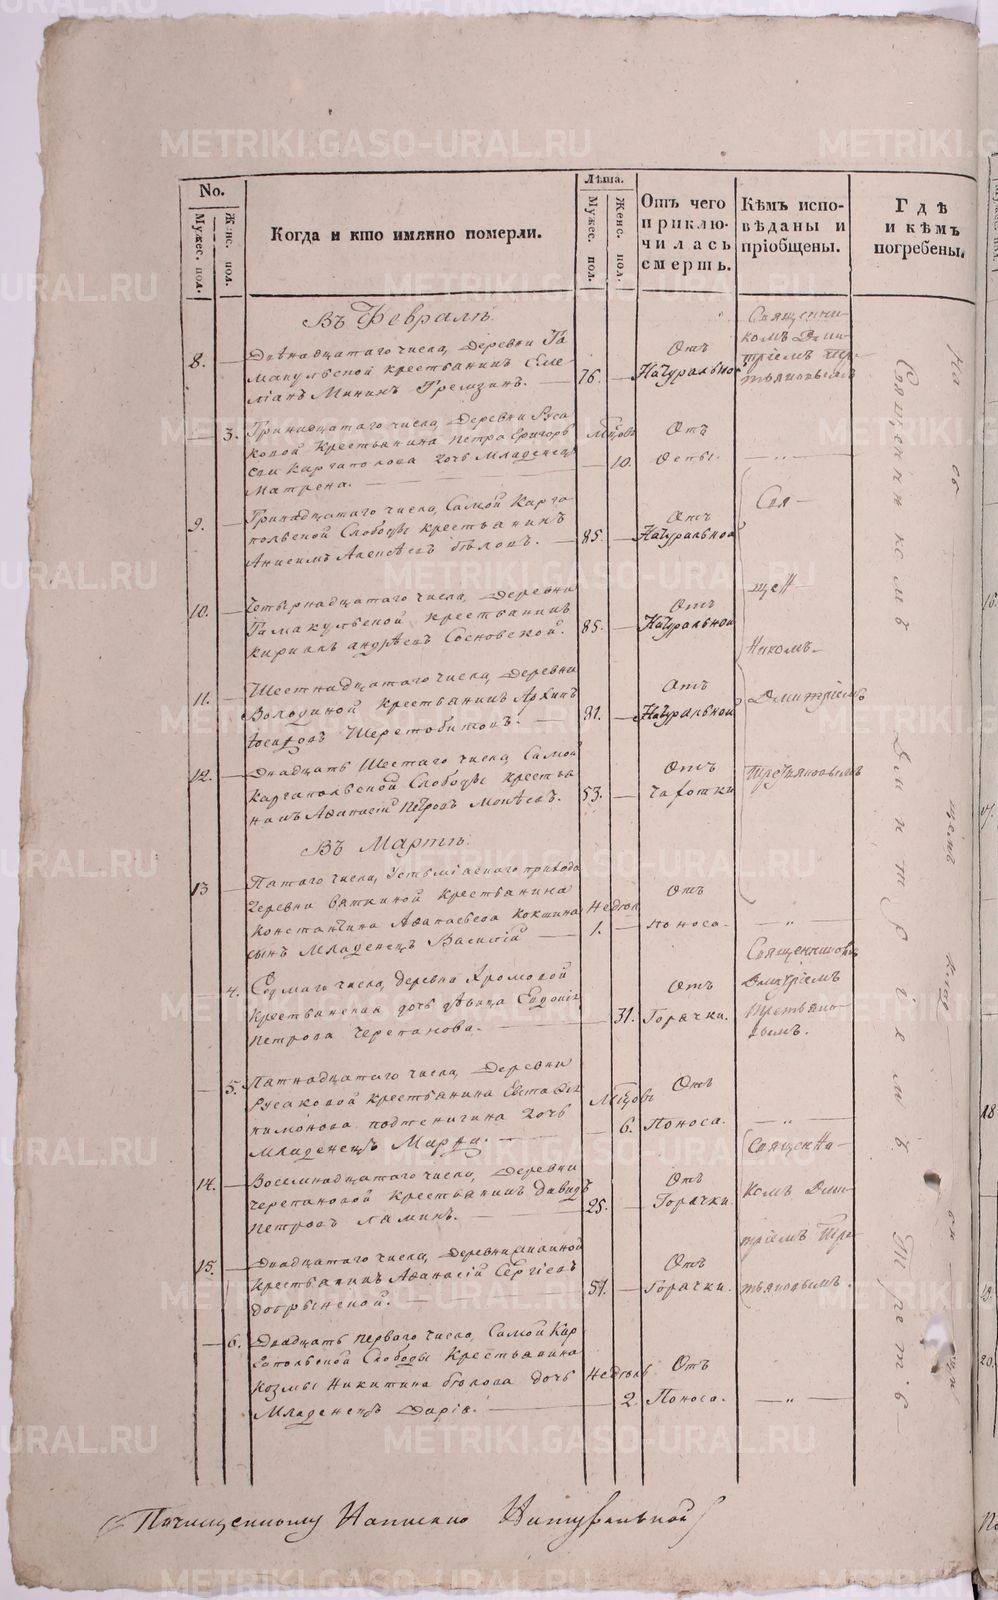 No.
Мужес. пол.
Женс. пол.
Когда и кто имянно померли.
Лѣта.
Мужес. пол.
Женс. пол.
Отъ чего приключилась смерть.
Кѣмъ исповѣданы и пріобщены.
Гдѣ и кѣмъ погребены.
Въ Февралѣ.
8. Двѣнадцатаго числа, Деревни Га
макульской крестьянинъ Еме
ліанъ Мининъ Гремзинъ. 76.
Отъ
Натуральной
Священни
комъ Дми
тріемъ Тре
тьяковымъ
3. Тринадцатаго числа, Деревни Руса
ковой Крестьянина Петра Григорь
ева Каргаполова дочь Младенецъ
Матрена.
М҃цовъ
10.
Отъ
Оспы.
9. Тринадцатаго числа, Самой Карга
польской Слободы крестьянинъ
Анисимъ Алексѣевъ Бѣловъ. 85.
Отъ
Натуральной
Свя
10. Четырнадцатаго числа, Деревни
Гамакульской крестьянинъ
Кирилъ Андрѣевъ Сосновской. 85.
Отъ
Натуральной
щен
никомъ
11. Шестнадцатаго числа, Деревни
Володиной крестьянинъ Архипъ
Іосифовъ Шерстобитовъ. 81.
Отъ
Натуральной
Дмитріемъ
12. Двадцать Шестаго числа, Самой
Каргапольской Слободы Крестья
нинъ Афанасій Петровъ Моисѣевъ. 53.
Отъ
Чахотки
Третьяковымъ
Въ Мартѣ.
13 Пятаго числа, Устьміаскаго прихода
Деревни Вяткиной крестьянина
Константина Афанасьева Кокшина
сынъ Младенецъ Василій
Недѣль
1.
Отъ
поноса.
4. Седмаго числа, деревни Хромовой
Крестьянская дочь дѣвица Евдокія
Петрова Черепанова. 31.
Отъ
Горячки.
Священникомъ
Дмитріемъ
Третьяко
вымъ.
5. Пятнадцатаго числа, Деревни
Русаковой крестьянина Евстафія
пимонова подтенигина дочь
Младенецъ Марфа.
М҃цовъ
6.
Отъ
Поноса.
14. Восемнадцатаго числа, Деревни
Черепановой Крестьянинъ Давидъ
Петровъ Ламинъ. 25.
Отъ
Горячки.
Священни
комъ Дми
15. Двадцатаго числа, Деревни
Крестьянинъ Афанасій Сергіевъ
Добрынской. 51.
Отъ
Горячки.
тріемъ Тре
тьяковымъ.
6. Двадцать перваго числа, Самой Кар
гапольской Слободы Крестьянина
Козмы Никитина Бѣлова дочь
Младенецъ Дарія.
Недѣль
2.
Отъ
Поноса.
На об
щемъ
Священникомъ Димитріемъ Третья
Почищенному Написано Натуральной
METRIKI.GASO-URAL.RU